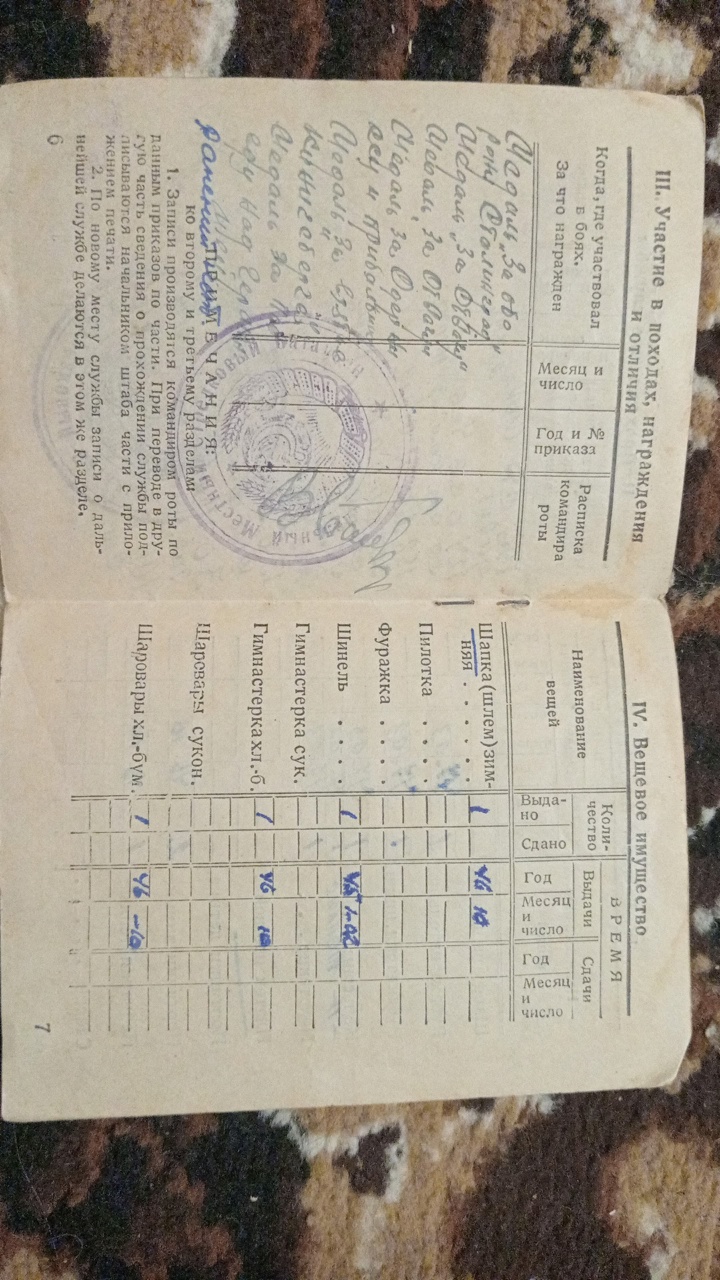 III. Участие в походах, награждения
и отличия
Когда, где участвовал
в боях.
За что награжден
Месяц и
число
Год и №
приказа
Расписка
командира
роты
Медаль „За обо
рону Сталинград"
Медаль „За Отвагу"
Медаль „За Отвагу"
Медаль За
Медаль „За
Медаль За
еду над
ПРИМЕЧАНИЯ:
ко второму и третьему разделам
1. Записи производятся командиром роты по
данным приказов по части. При переводе в дру-
гую часть сведения о прохождении службы под-
писываются начальником штаба части с прило-
жением печати.
2. По новому месту службы записи о даль-
нейшей службе делаются в этом же разделе.
6
IV. Вещевое имущество
Наименование
вещей
Коли-
чество
ВРЕМЯ
Выдачи
Сдачи
Выда-
но
Сдано
Год
Месяц
и
число
Год
Месяц
и
число
Шапка (шлем) зим-
няя . . . . . . 1 46 10
Пилотка . . . .
Фуражка . . . .
Шинель . . . . 1
Гимнастерка сук.
Гимнастерка хл.-б. 1 46 10
Шаровары сукон.
Шаровары хл.-бум. 1 46 -10
7